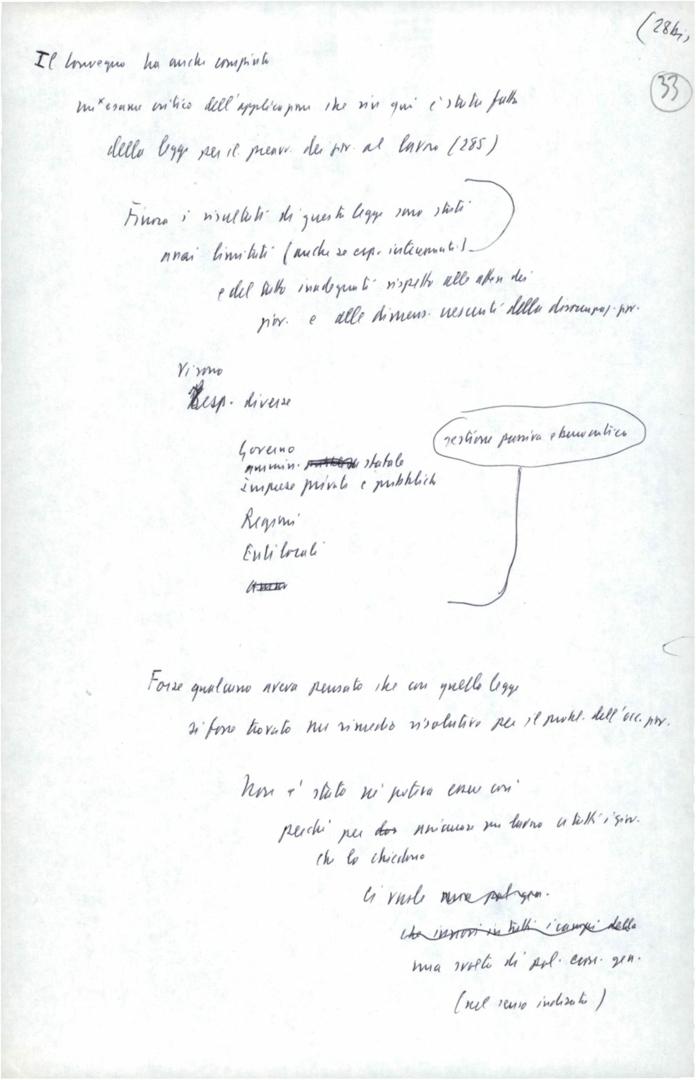 (28bis
33
Il convegno ha anche compiuto
un esame critico dell'applicazione che sin qui è stata fatta
della legge per il preavv. dei giov. al lavoro (285)
Finora i risultati di questa legge sono stati
assai limitati (anche se esp. interessanti)
e del tutto inadeguati rispetto alle attese dei
giov. e alle dimens. crescenti della disoccupaz. giov.
Vi sono
Resp. diverse
Governo
ammin. statale
imprese private e pubblich
gestione passiva e burocratica
Regioni
Enti locali
Forse qualcuno aveva pensato che con quella legge
si fosse trovato un rimedio risolutivo per il probl. dell'occ. giov.
Non è stato né poteva essere così
perché per assicurare un lavoro a tutti i giov.
che lo chiedono
Ci vuole
che innovi in tutti i campi della
una svolta di pol. econ. gen.
(nel senso indicato)